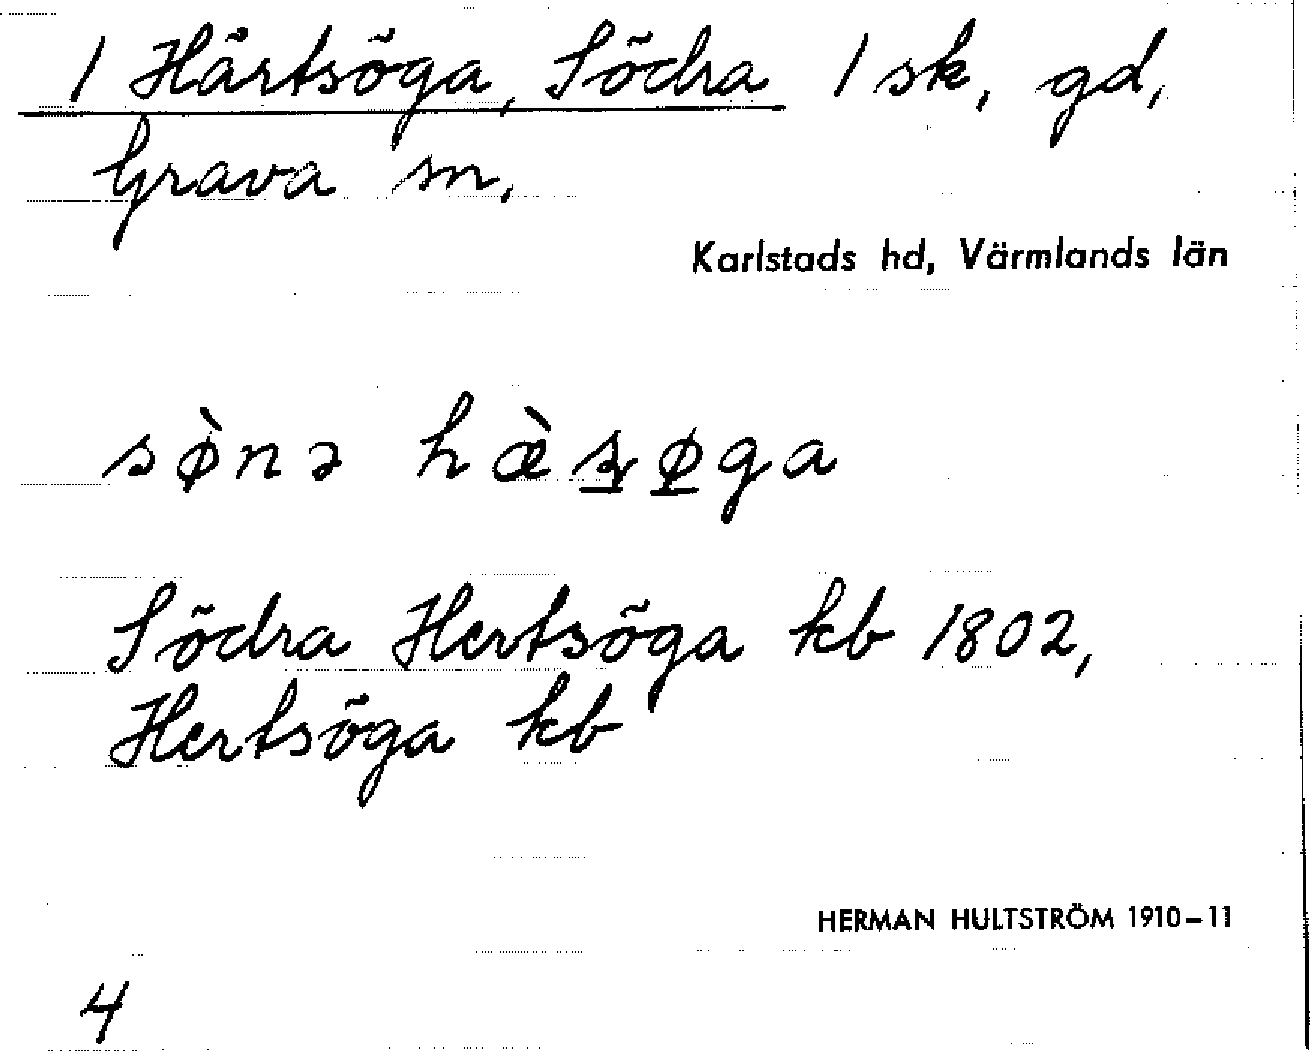 1 Härtsöga, Södra 1 sk, gd,
Grava sn,
Karlstads hd, Värmlands län
sø̀nə hæ̀s̠ø̠ga
Södra Hertsöga kb 1802,
Hertsöga kb
HERMAN HULTSTRÖM 1910–11
4